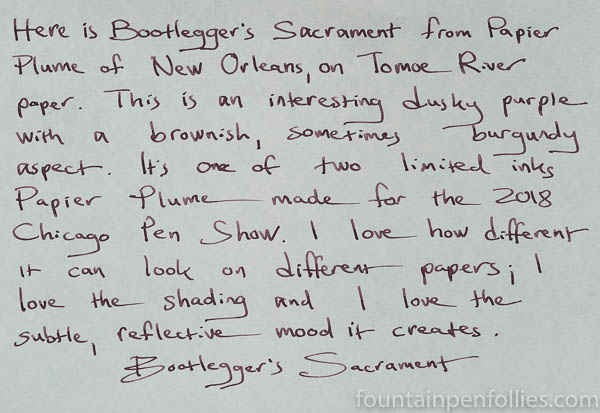 Here is Bootlegger's Sacrament from Papier
Plume of New Orleans, on Tomoe River
paper. This is an interesting dusky purple
with a brownish, sometimes burgundy
aspect. It's one of two limited inks
Papier Plume made for the 2018
Chicago Pen Show. I love how different
it can look on different papers; I
love the shading and I love the
subtle, reflective mood it creates.
Bootlegger's Sacrament
fountainpenfollies.com